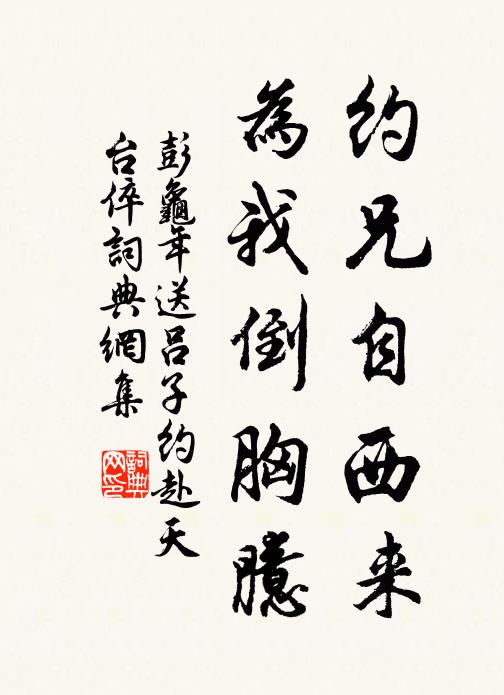 約兄自西来
為我倒胸臆
彭龜年送呂子約赴天
台倅詞典網集
詞典
网印